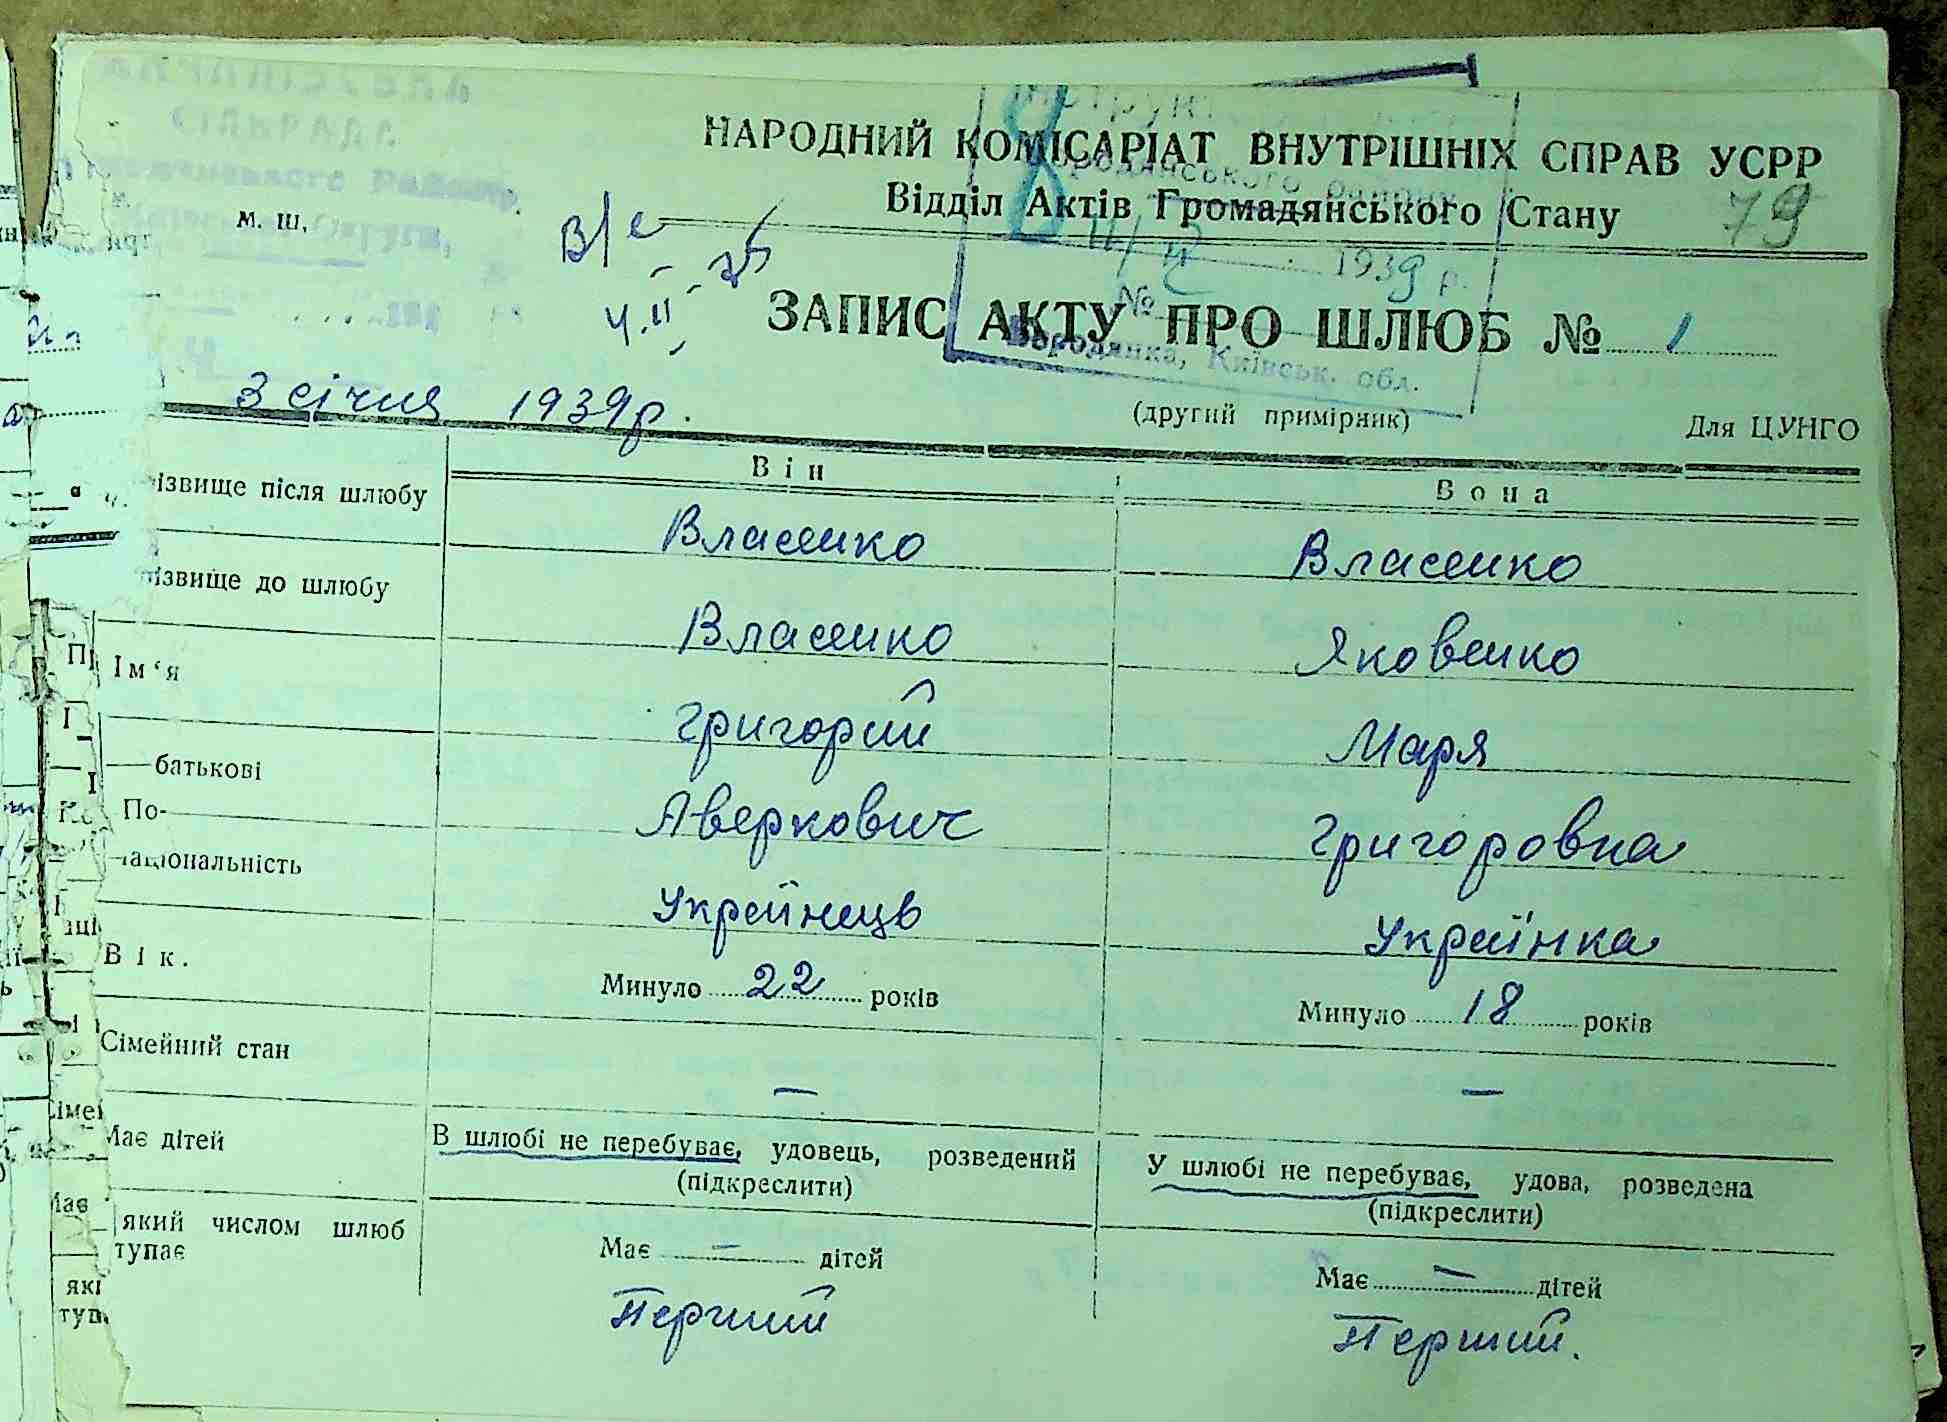 СІЛЬРАДА
НАРОДНИЙ КОМІСАРІАТ ВНУТРІШНІХ СПРАВ УСРР
Відділ Актів Громадянського Стану 79
М. Ш.
11/ІІ 1939 р.
№
Бородянка, Київськ. обл.
ЗАПИС АКТУ ПРО ШЛЮБ № 1
3 січня 1939 р.
(другий примірник) Для ЦУНГО
Він Вона
ізвище після шлюбу Власенко Власенко
ізвище до шлюбу Власенко Яковенко
Ім'я Григорий Маря
батькові Аверкович Григоровна
По-
аціональність Українець Українка
Вік. Минуло 22 років Минуло 18 років
Сімейний стан — —
В шлюбі не перебуває, удовець, розведений У шлюбі не перебуває, удова, розведена
(підкреслити) (підкреслити)
Має дітей Має — дітей Має — дітей
який числом шлюб
тупає Перший Перший.